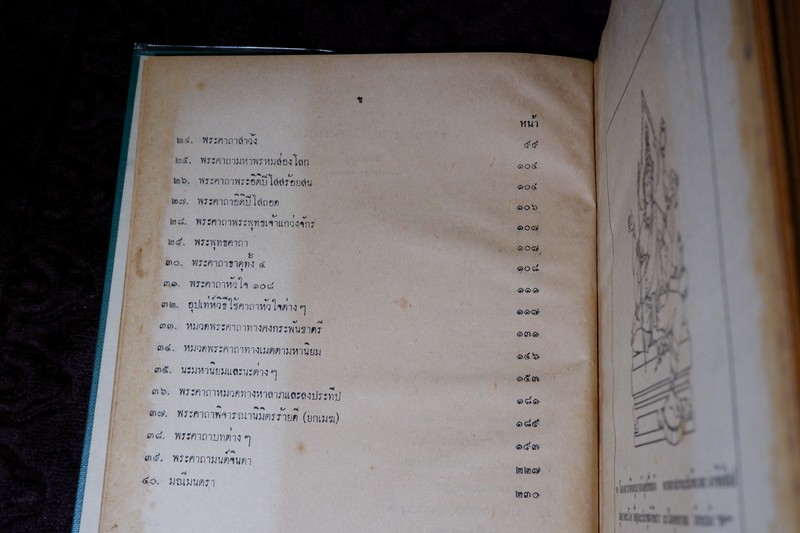 ข
หน้า
๒๔. พระคาถาสาวัง ๙๙
๒๕. พระคาถามหาพรหมส่องโลก ๑๐๔
๒๖. พระคาถาพระอิติปิโสสร้อยสน ๑๐๔
๒๗. พระคาถาอิติปิโสถอด ๑๐๖
๒๘. พระคาถาพระพุทธเจ้าแกว่งจักร ๑๐๗
๒๙. พระพุทธคาถา ๑๐๗
๓๐. พระคาถาธาตุทั้ง ๔ ๑๐๘
๓๑. พระคาถาหัวใจ ๑๐๘ ๑๑๑
๓๒. อุปเท่ห์วิธีใช้คาถาหัวใจต่างๆ ๑๑๗
๓๓. หมวดพระคาถาทางคงกระพันชาตรี ๑๓๑
๓๔. หมวดพระคาถาทางเมตตามหานิยม ๑๔๖
๓๕. นะมหานิยมและนะต่างๆ ๑๕๓
๓๖. พระคาถาหมวดทางหาลาภและลงประทีป ๑๘๑
๓๗. พระคาถาพิจารณานิมิตรร้ายดี (ยกเมฆ) ๑๘๙
๓๘. พระคาถาบทต่างๆ ๑๙๓
๓๙. พระคาถามนต์จินดา ๒๒๗
๔๐. มณีมนตรา ๒๓๐